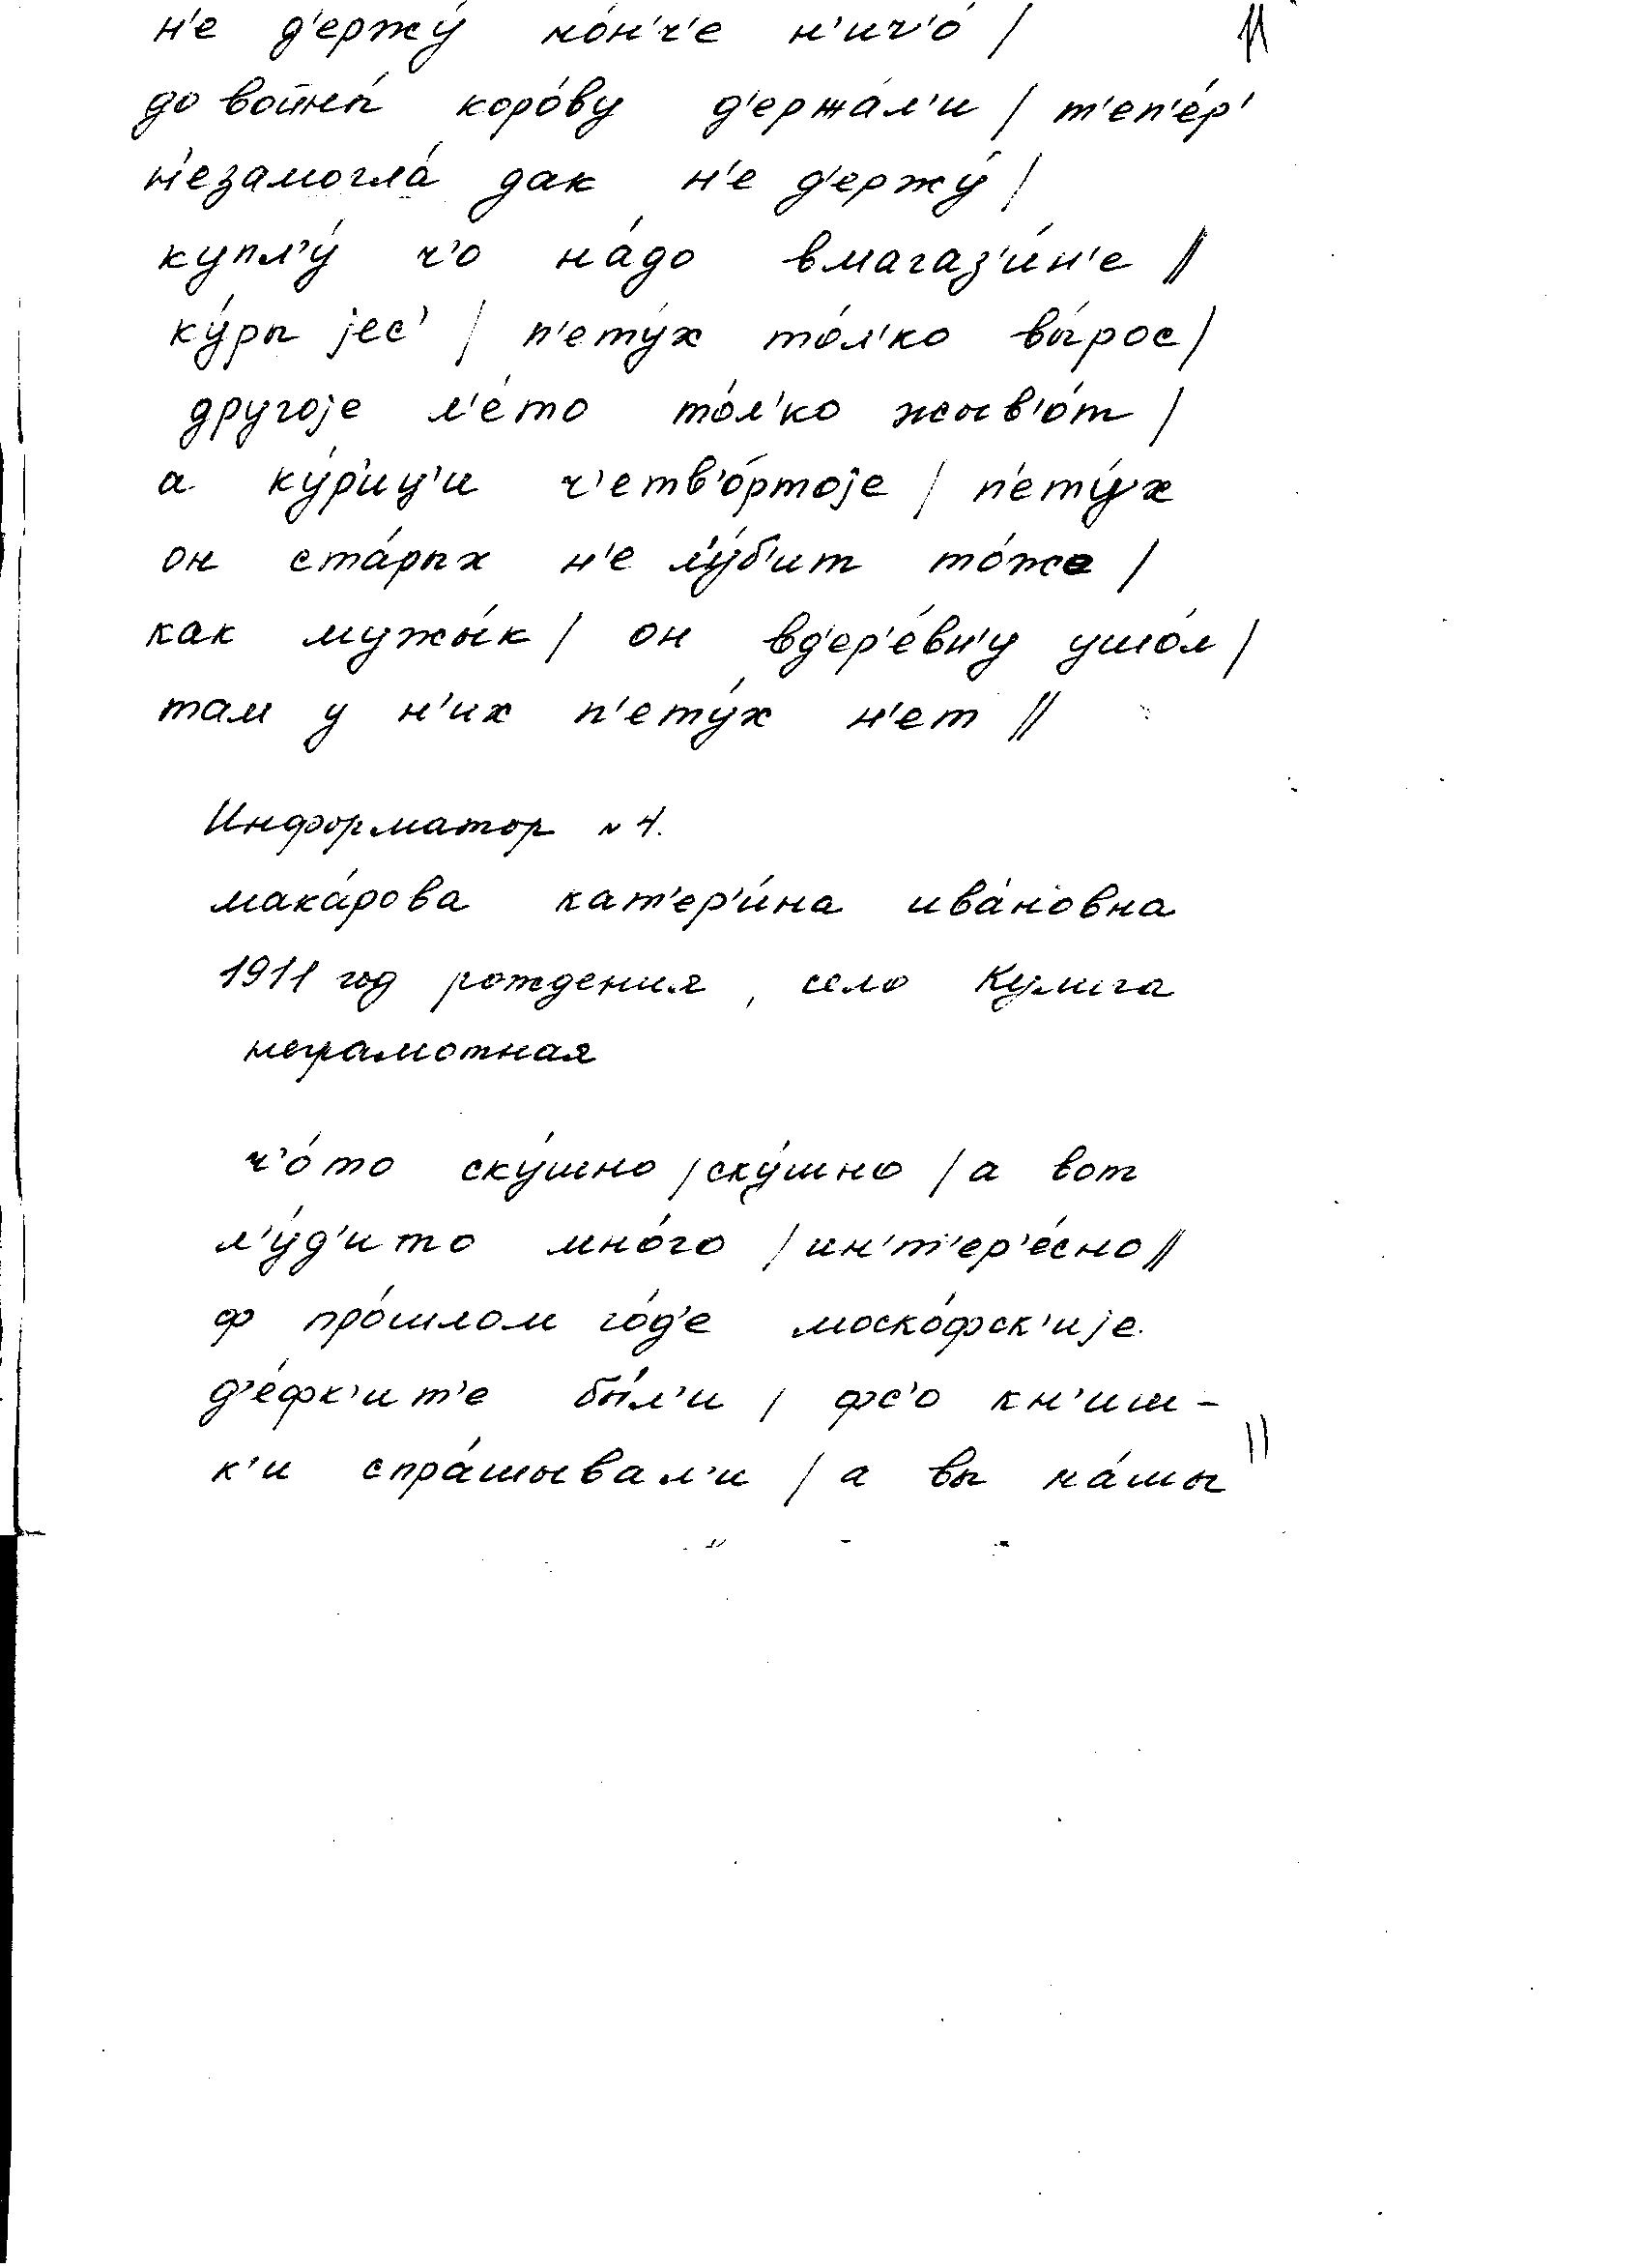 н'е д'ержу́ но́н'ч'е н'ич'о́ / 11
до войны́ коро́ву д'ержа́л'и / т'еп'е́р'
н'езамогла́ дак н'е д'ержу́ /
купл'у́ ч'о на́до вмагаз'и́н'е //
ку́ры jес' / п'ету́х то́л'ко вы́рос /
другоjе л'е́то то́л'ко жыв'о́т /
а ку́р'иц'и ч'етв'о́ртоjе / п'ету́х
он ста́рых н'е л'у́б'ит то́же /
как мужы́к / он вд'ер'е́вн'у ушо́л /
там у н'их п'ету́х н'ет //
Информатор №4.
мака́рова кат'ер'и́на ива́новна
1911 год рождения, село Кулига
неграмотная
ч'о́то ску́шно / ску́шно / а вот
л'у́д'ито мно́го / ин'т'ер'е́сно //
ф про́шлом го́д'е моско́фск'иjе
д'е́фк'ит'е бы́л'и / фс'о кн'иш-
к'и спра́шывал'и / а вы на́шы //